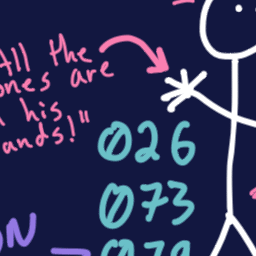 All the
ones are
his
ands!"
026
073
ON